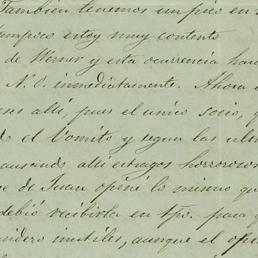 También tenemos un pico en
tampoco estoy muy contento
de Werner y esta ocurrencia hará
N. O. inmediatamente. Ahora
allí, pues el único socio,
el Vomito y segun las
causando allí estragos horrorosos
de Juan opiné lo mismo qu
debió recibirla en tpo. para
inutiles, aunque el